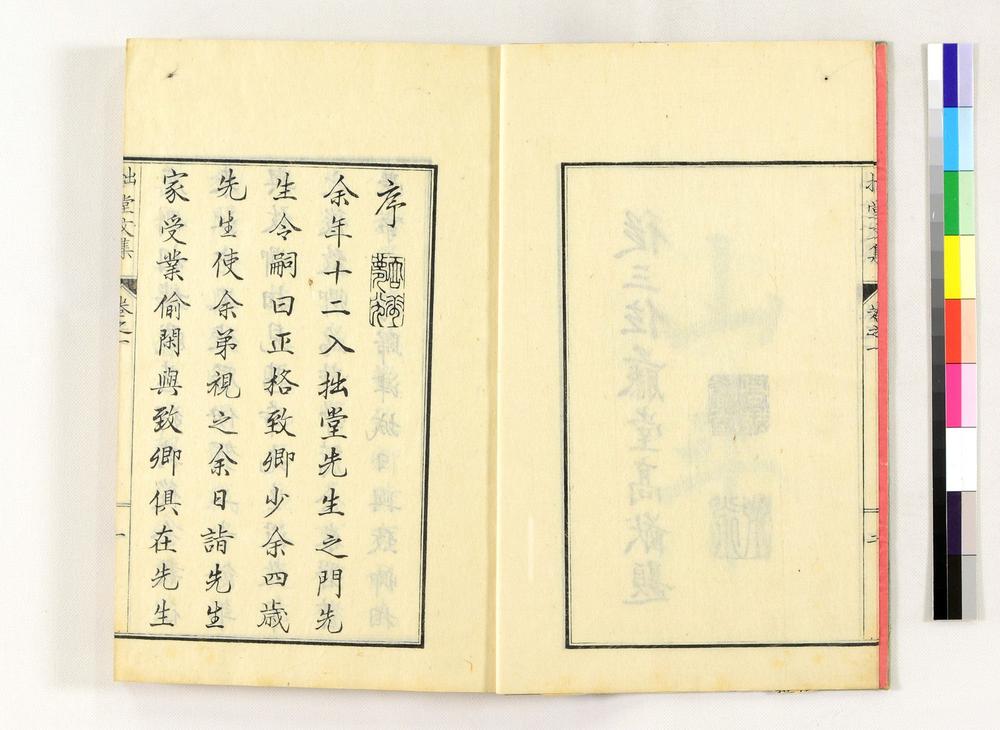 拙堂文集
卷之一
二
序
余年十二入拙堂先生之門先
生令嗣曰正格致卿少余四歳
先生使余弟視之余日詣先生
家受業偷閑與致卿俱在先生
拙堂文集
卷之一
一